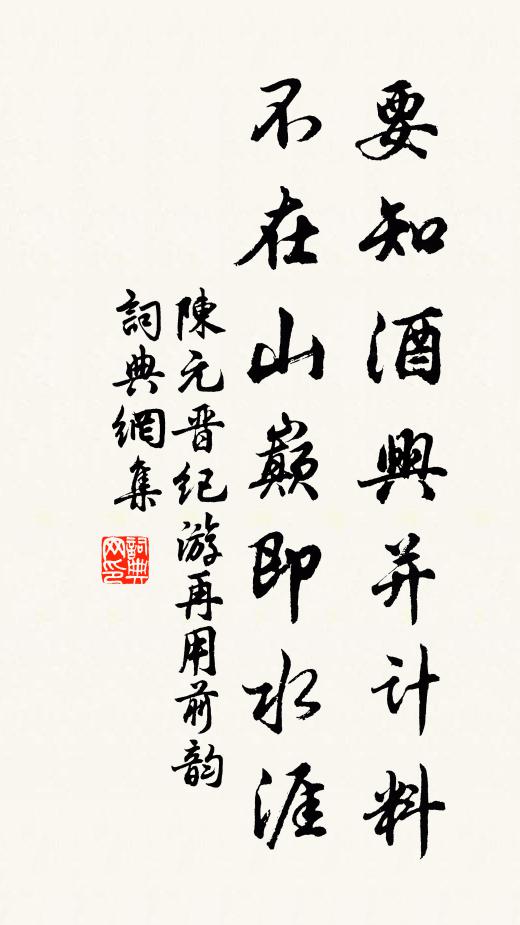 要知酒興并計料
不在山巔即水涯
陳元晋紀游再用前韵
詞典網集
詞典網印